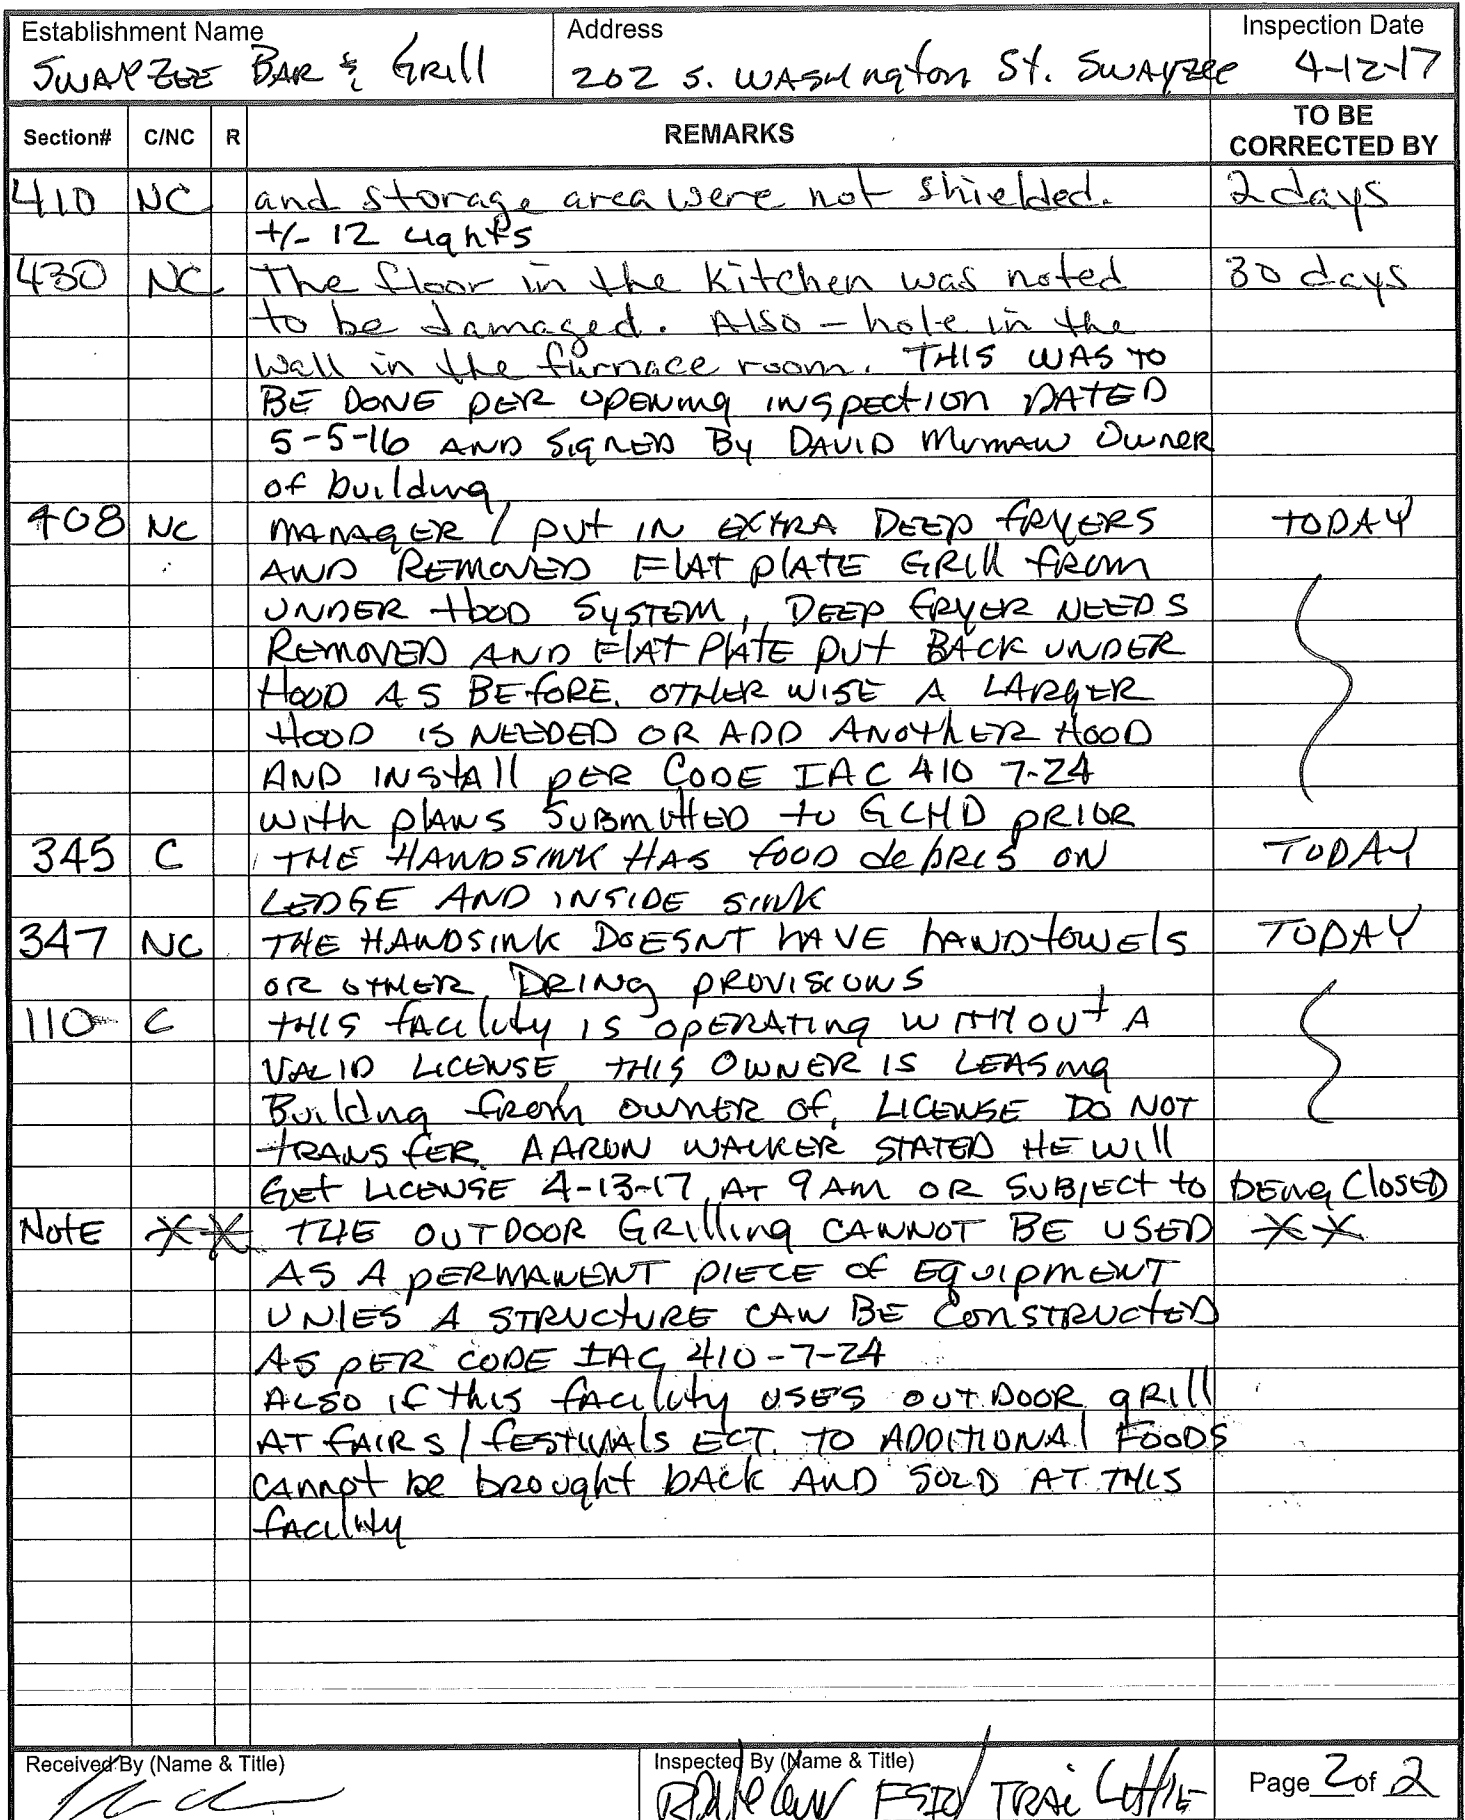 Establishment Name Address Inspection Date
SWAYZEE BAR & GRILL 202 S. WASHINGTON St. SWAYZEE 4-12-17
Section# C/NC R REMARKS TO BE CORRECTED BY
410 NC and storage area were not shielded. 2 days
+/- 12 lights
430 NC The floor in the kitchen was noted 30 days
to be damaged. Also - hole in the
wall in the furnace room. THIS WAS TO
BE DONE PER OPENING INSPECTION DATED
5-5-16 AND SIGNED BY DAVID MUMAW OWNER
of building
408 NC MANAGER / PUT IN EXTRA DEEP FRYERS TODAY
AND REMOVED FLAT PLATE GRILL FROM
UNDER HOOD SYSTEM, DEEP FRYER NEEDS
REMOVED AND FLAT PLATE PUT BACK UNDER
HOOD AS BEFORE. OTHER WISE A LARGER
HOOD IS NEEDED OR ADD ANOTHER HOOD
AND INSTALL PER CODE IAC 410 7-24
WITH PLANS SUBMITTED TO GCHD PRIOR
345 C THE HANDSINK HAS FOOD debRIS ON TODAY
LEDGE AND INSIDE SINK
347 NC THE HANDSINK DOESNT HAVE HANDTOWELS TODAY
OR OTHER DRING PROVISIONS
110 C THIS FACILITY IS OPERATING WITHOUT A
VALID LICENSE THIS OWNER IS LEASING
BUILDING FROM OWNER OF. LICENSE DO NOT
TRANSFER. AARON WALKER STATED HE WILL
GET LICENSE 4-13-17 AT 9 AM OR SUBJECT TO BEING CLOSED
NOTE ** THE OUTDOOR GRILLING CANNOT BE USED **
AS A PERMANENT PIECE OF EQUIPMENT
UNLES A STRUCTURE CAN BE CONSTRUCTED
AS PER CODE IAC 410-7-24
ALSO IF THIS FACILITY USES OUTDOOR GRILL
AT FAIRS / FESTIVALS ECT. TO ADDITIONAL FOODS
CANNOT BE BROUGHT BACK AND SOLD AT THIS
FACILITY
Received By (Name & Title) Inspected By (Name & Title) Page 2 of 2